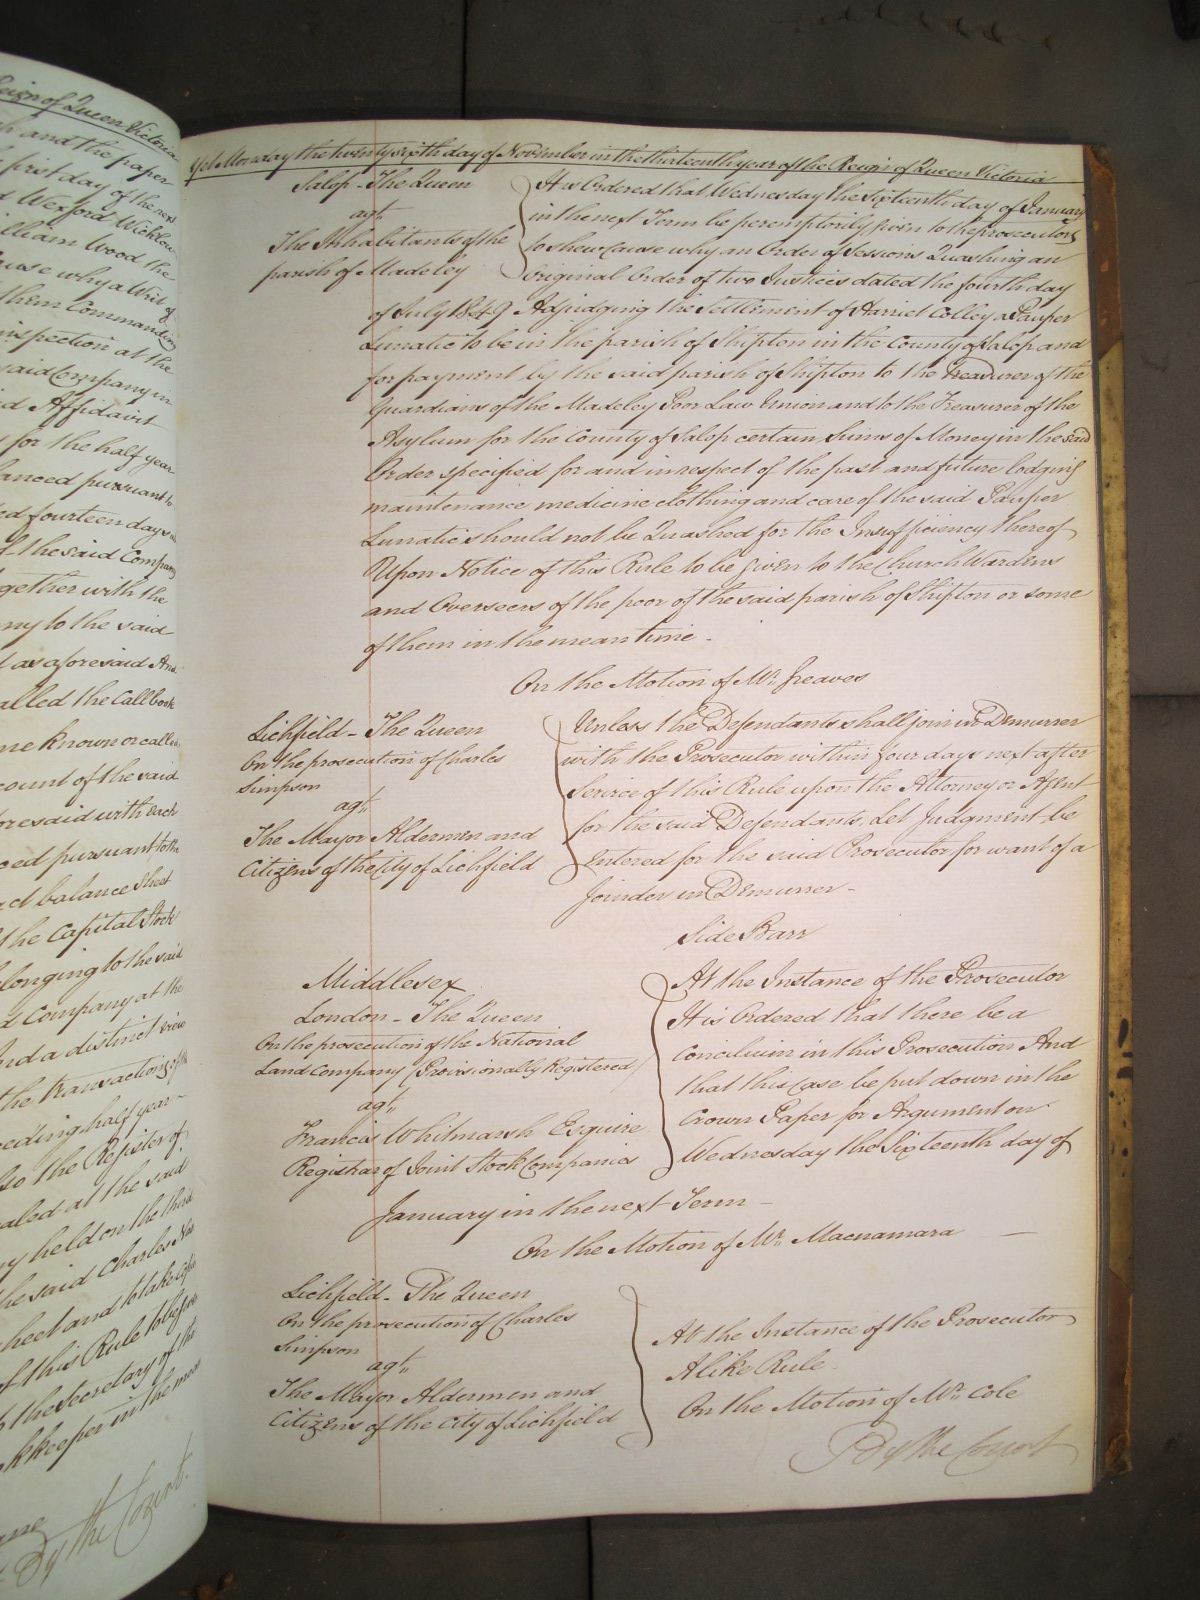 Reign of Queen Victoria
and the paper
first day of the next
Wexford Wicklow
William Wood the
cause why a Writ of
them Commanding
inspection at the
said Company in
Affidavit
for the half year
balanced pursuant to
fourteen days
of the said Company
together with the
to the said
as aforesaid And
called the Call book
me known or called
account of the said
aforesaid with each
pursuant to the
balance Sheet
the Capital Stock
belonging to the said
Company at the
And a distinct view
the transactions of the
preceding half year
to the Register of
at the said
held on the third
the said Charles
sheet and to take
of this Rule to be given
the Secretary of the
kkeeper in the mean
By the Court
Yet Monday the twenty sixth day of November in the thirteenth year of the Reign of Queen Victoria
Salop - The Queen
agt.
The Inhabitants of the
parish of Madeley
It is Ordered that Wednesday the Sixteenth day of January
in the next Term be peremptorily given to the prosecutors
to shew Cause why an Order of Sessions Quashing an
original Order of two Justices dated the fourth day
of July 1849 Adjudging the Settlement of Harriet Colley a Pauper
Lunatic to be in the parish of Shipton in the County of Salop and
for payment by the said parish of Shipton to the Treasurer of the
Guardians of the Madeley Poor Law Union and to the Treasurer of the
Asylum for the County of Salop certain Sums of Money in the said
Order specified for and in respect of the past and future lodging
maintenance medicine clothing and care of the said Pauper
Lunatic should not be Quashed for the Insufficiency thereof
Upon Notice of this Rule to be given to the Church Wardens
and Overseers of the poor of the said parish of Shipton or some
of them in the mean time -
On the Motion of Mr. Greaves
Lichfield - The Queen
On the prosecution of Charles
Simpson
agt.
The Mayor Aldermen and
Citizens of the City of Lichfield
Unless the Defendants shall join in Demurrer
with the Prosecutor within four days next after
Service of this Rule upon the Attorney or Agent
for the said Defendants, Let Judgment be
Entered for the said Prosecutor for want of a
Joinder in Demurrer -
Side Barr
Middlesex
London - The Queen
On the prosecution of the National
Land Company (Provisionally Registered)
agt.
Francis Whitmarsh Esquire
Registrar of Joint Stock Companies
At the Instance of the Prosecutor
It is Ordered that there be a
Concilium in this Prosecution And
that this Case be put down in the
Crown Paper for Argument on
Wednesday the Sixteenth day of
January in the next Term -
On the Motion of Mr. Macnamara -
Lichfield - The Queen
On the prosecution of Charles
Simpson
agt.
The Mayor Aldermen and
Citizens of the City of Lichfield
At the Instance of the Prosecutor
A like Rule.
On the Motion of Mr. Cole
By the Court